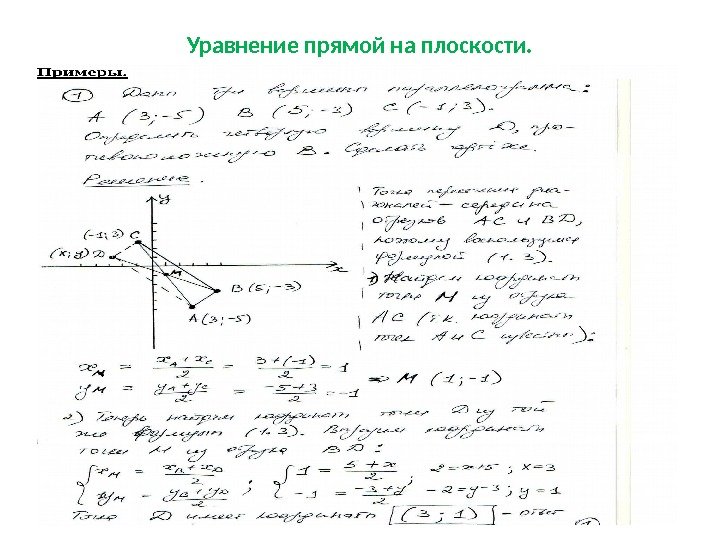 Уравнение прямой на плоскости.
Примеры.
① Дано три вершины параллелограмма:
A (3; -5) B (5; -3) C (-1; 3).
Определить четвертую вершину D, про-
тивоположную B. Сделать чертёж.
Решение.
y
(-1; 3) C
(x; y) D
M
x
B (5; -3)
A (3; -5)
Точка пересечения диа-
гоналей – середина
отрезков AC и BD,
поэтому воспользуемся
формулой (1.3).
1) Найдем координаты
точки M из отрезка
AC (т.к. координаты
точек A и C известны):
x_M = (x_A + x_C)/2 = (3 + (-1))/2 = 1
y_M = (y_A + y_C)/2 = (-5 + 3)/2 = -1 => M (1; -1)
2) Теперь найдем координаты точки D из той
же формулы (1.3). Выразим координаты
точки M из отрезка BD:
{ x_M = (x_B + x_D)/2 ; { 1 = (5 + x)/2 ; 2 = x + 5 ; x = 3
y_M = (y_B + y_D)/2 ; -1 = (-3 + y)/2 -2 = y - 3 ; y = 1
Точка D имеет координаты (3; 1) – ответ